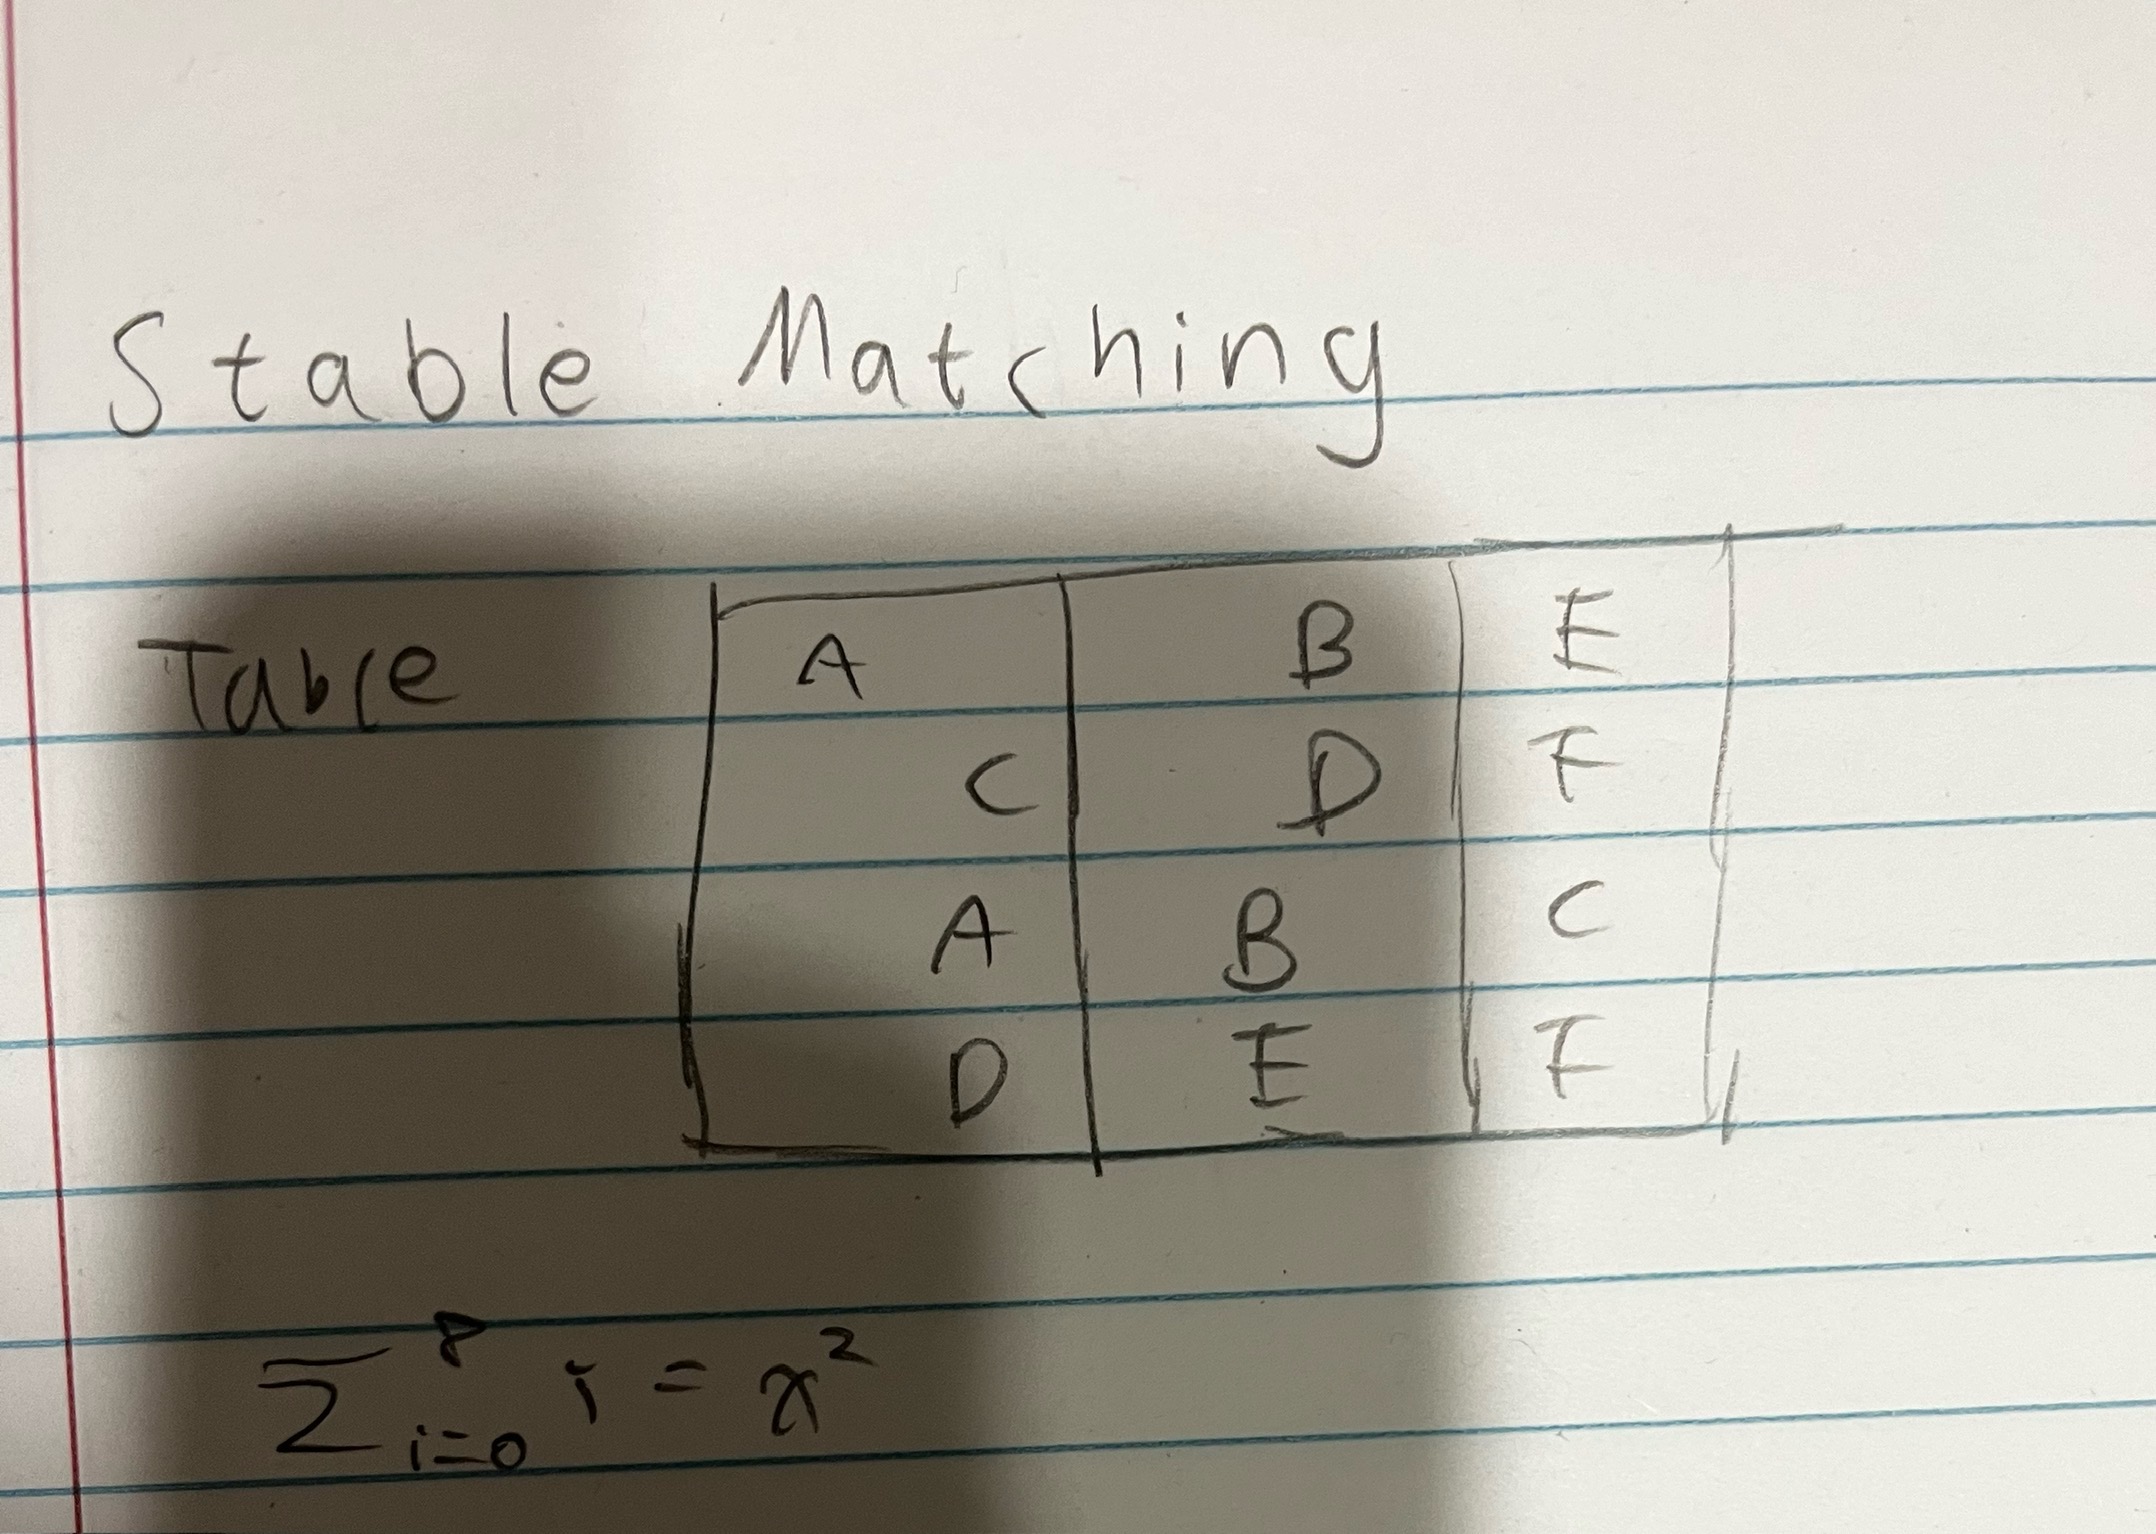 Stable Matching
Table A B E
C D F
A B C
D E F
∑⁸ᵢ₌₀ i = x²